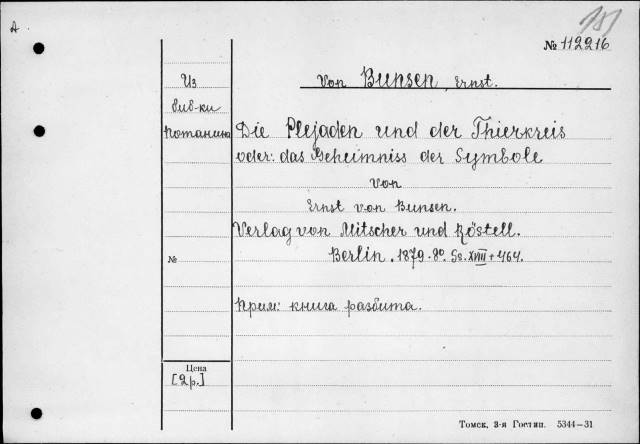 А
№ 112216
Из
библ-ки
Потанина
von Bunsen, Ernst.
Die Plejaden und der Thierkreis
oder: das Geheimniss der Symbole
von
Ernst von Bunsen.
Verlag von Mitscher und Röstell.
Berlin. 1879. 8º. Ss. XVIII + 464.
№
Прим: книга разбита.
Цена
[2р.]
Томск, 3-я Гостип. 5344—31